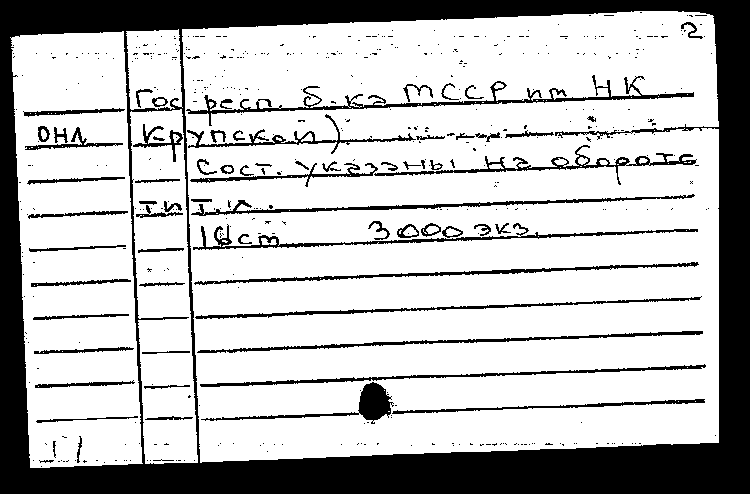 2
Гос респ. б-ка МССР им НК
ОНЛ Крупской)
Сост. указаны на обороте
тит.л.
16см 3000 экз.